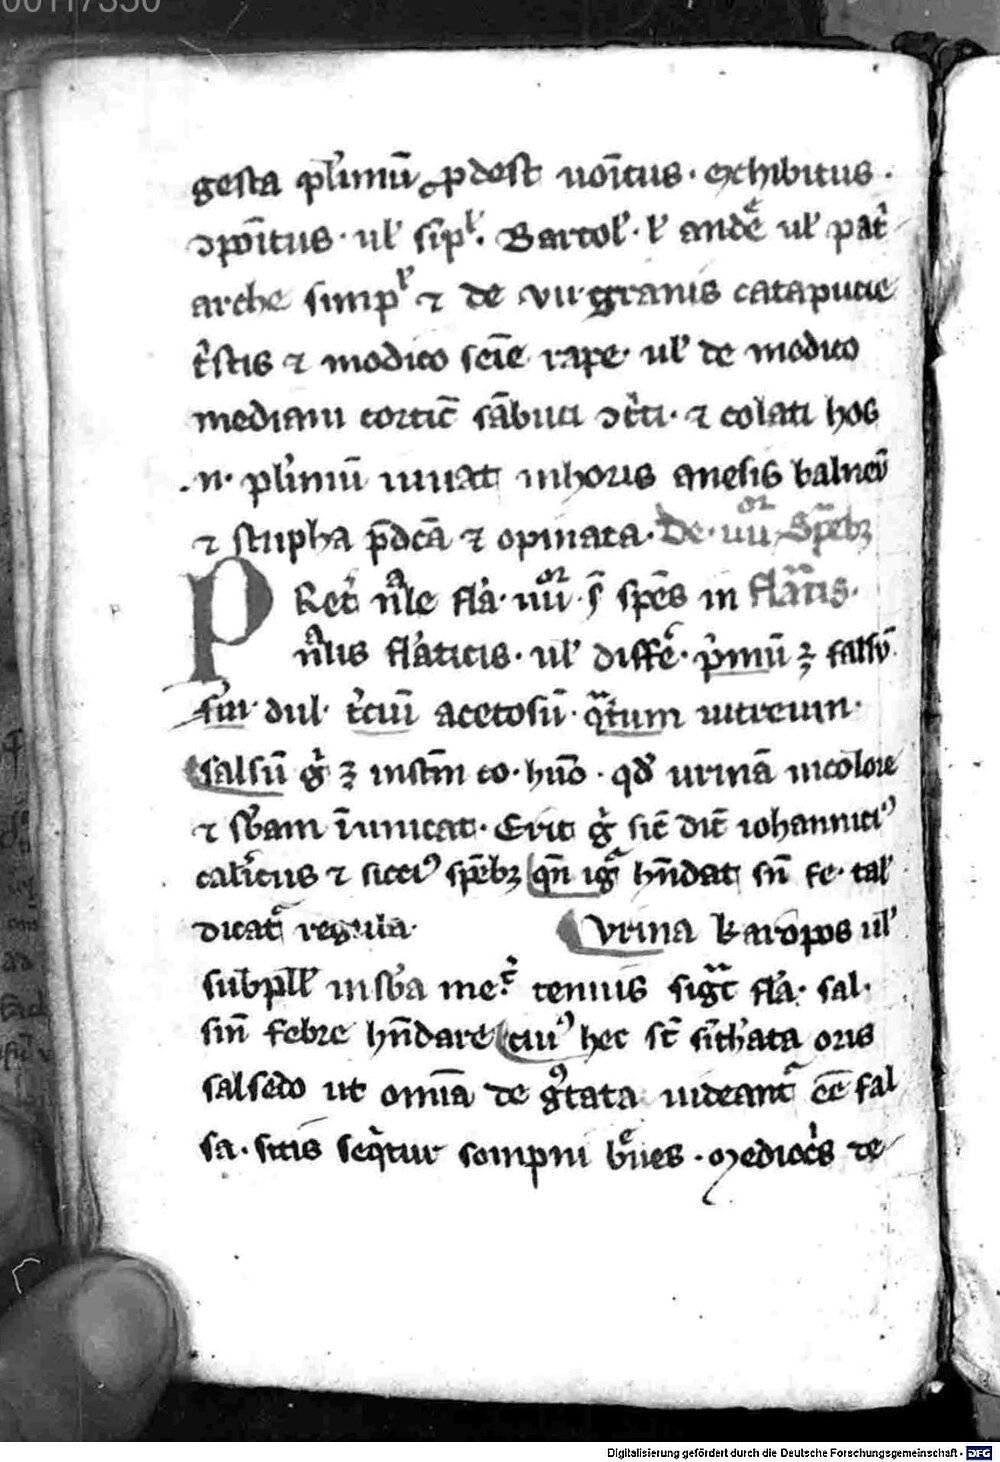 00117350
gesta pl'imū ꝓdest uoītus · exhibitus ·
ɔpoītus · ul' sīpl' · Bartol' · l' andē ul' pat'
arche simpl' ⁊ de vii · granis catapucie
t'stis ⁊ modico seīe rape · ul' de modico
mediani cortic̄ sābuci ɔt'ti · ⁊ colati hoc
.n. pl'imū iuuat in horis anesis balneū
⁊ stupha p̄dcā ⁊ opinata · De · uū · Spēbꝫ
PRet' nāle fla' · uū · ſ̄ spēs in flātis ·
nālis fl'aticis · ul' diffē · p'mū ꝫ salsū ·
sm̄ · dul · t'ciū acetosū · qᵃrtum uitreum ·
salsū g' ꝫ instm̄ co · huō · qd' urinā incolore
⁊ sb'am īmutat · Erit g' sic̄ dic̄ iohannici9
cal'itus ⁊ sicci9 spēbꝫ qn̄ igᵃ hn̄dat sn̄ fe · tal'
dicat' regula ·
Vrina karopos ul'
subpll' in sb'a me · tenuis sigᵃt fl'a · sal ·
sin̄ febre hn̄dare cui9 hec st̄ sīth'ata oris
salsedo ut omīa de g9tata uideant' eē sal
sa · sitis seq̄tur sompni b'ues · mediocs̄ de
Digitalisierung gefördert durch die Deutsche Forschungsgemeinschaft - DFG